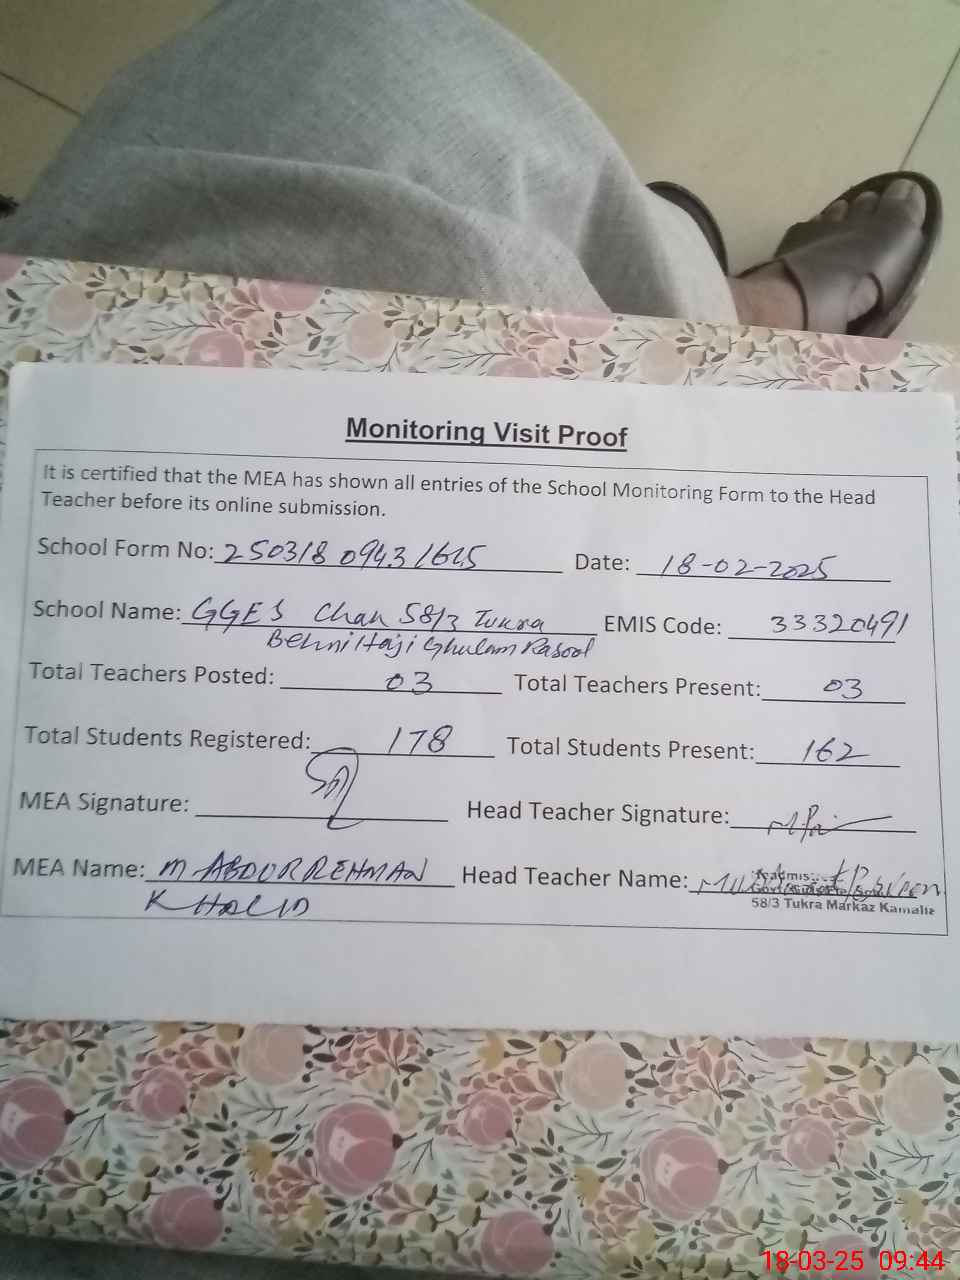 Monitoring Visit Proof
It is certified that the MEA has shown all entries of the School Monitoring Form to the Head
Teacher before its online submission.
School Form No: 250318 0943 1625 Date: 18-02-2025
School Name: GGES Chak 58/3 Tukra EMIS Code: 33320491
Behni Haji Ghulam Rasool
Total Teachers Posted: 03 Total Teachers Present: 03
Total Students Registered: 178 Total Students Present: 162
MEA Signature: Head Teacher Signature:
MEA Name: M ABDUR REHMAN Head Teacher Name: Parveen
KHALID
58/3 Tukra Markaz Kamalia
18-03-25 09:44